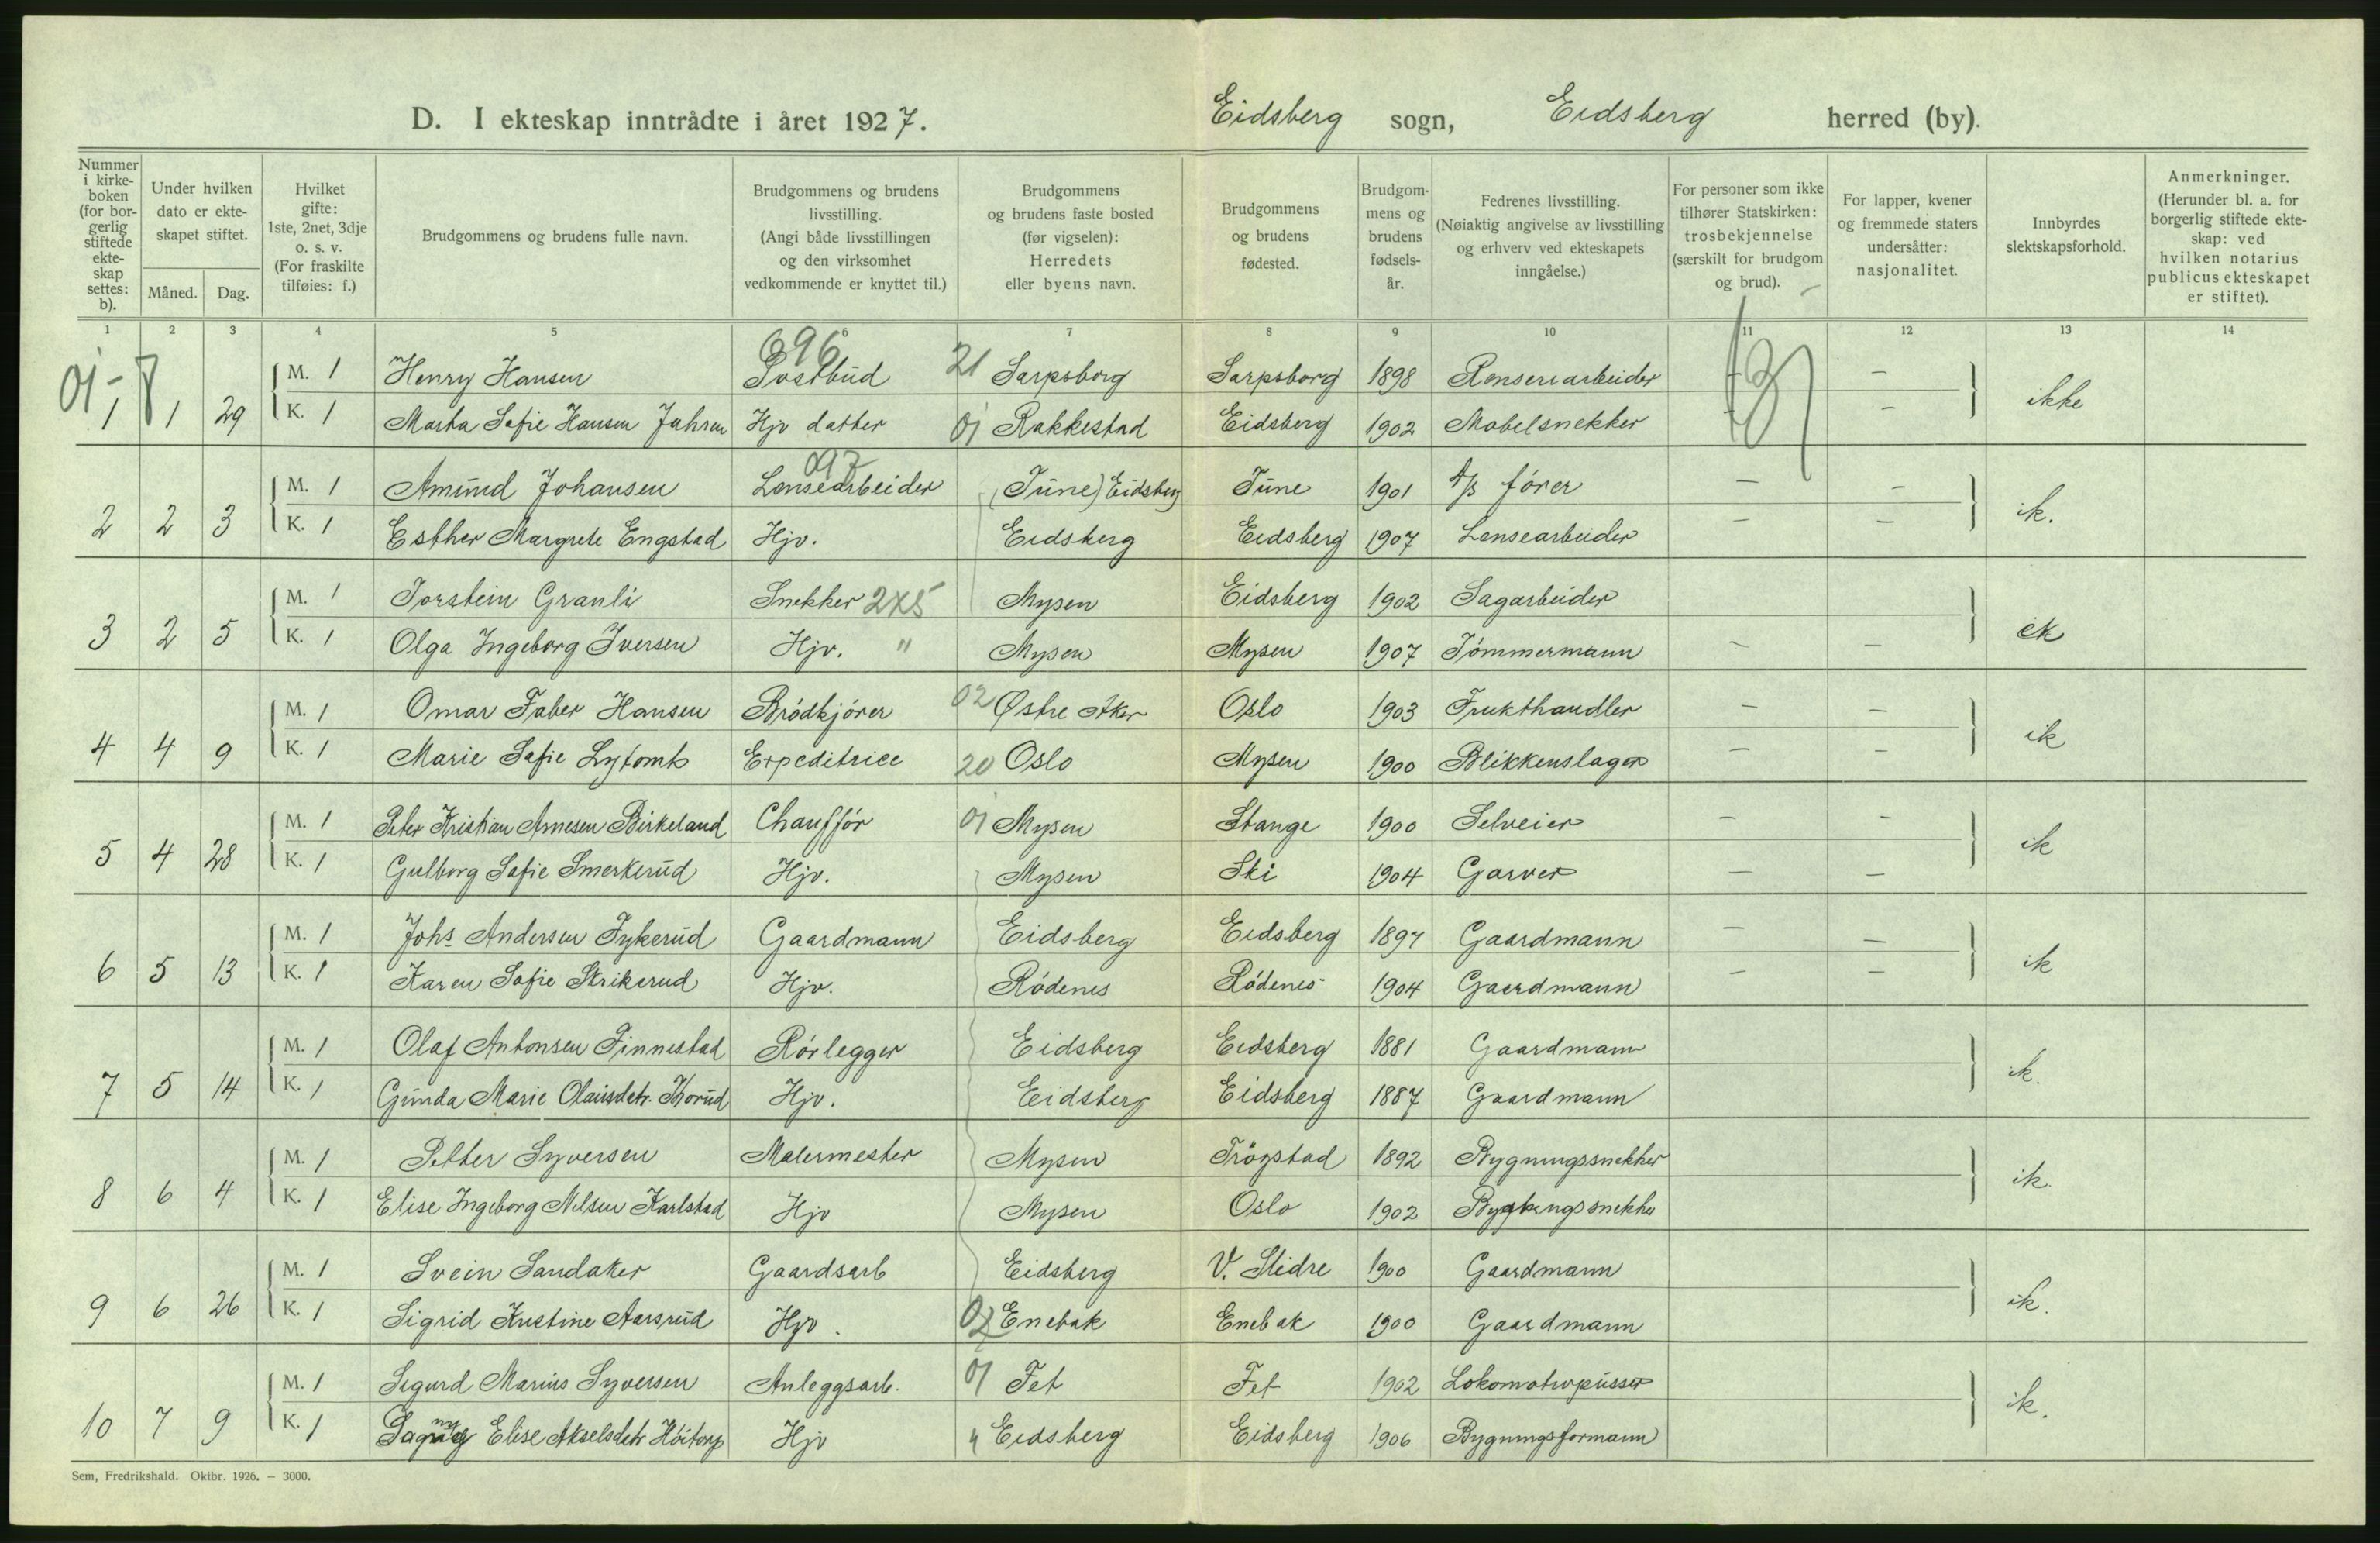 D. I ekteskap inntrådte i året 1927. Eidsberg sogn, Eidsberg herred (by).
Nummer i kirkeboken (for borgerlig stiftede ekteskap settes: b).
Under hvilken dato er ekteskapet stiftet.
Måned. Dag.
Hvilket gifte: 1ste, 2net, 3dje o. s. v. (For fraskilte tilføies: f.)
Brudgommens og brudens fulle navn.
Brudgommens og brudens livsstilling. (Angi både livsstillingen og den virksomhet vedkommende er knyttet til.)
Brudgommens og brudens faste bosted (før vigselen): Herredets eller byens navn.
Brudgommens og brudens fødested.
Brudgommens og brudens fødselsår.
Fedrenes livsstilling. (Nøiaktig angivelse av livsstilling og erhverv ved ekteskapets inngåelse.)
For personer som ikke tilhører Statskirken: trosbekjennelse (særskilt for brudgom og brud).
For lapper, kvener og fremmede staters undersåtter: nasjonalitet.
Innbyrdes slektskapsforhold.
Anmerkninger. (Herunder bl. a. for borgerlig stiftede ekteskap: ved hvilken notarius publicus ekteskapet er stiftet).
1 2 3 4 5 6 7 8 9 10 11 12 13 14
01-8 696
M. 1 Henry Hansen Postbud 21 Sarpsborg Sarpsborg 1898 Renseriarbeider - -
1 1 29 K. 1 Marta Sofie Hansen Jahren Hjv datter 01 Rakkestad Eidsberg 1902 Møbelsnekker - - ikke
097
M. 1 Amund Johansen Lensearbeider (Tune) Eidsberg Tune 1901 fører - -
2 2 3 K. 1 Esther Margrete Engstad Hjv. Eidsberg Eidsberg 1907 Lensearbeider - - ik.
M. 1 Torstein Granli Snekker 2X5 Mysen Eidsberg 1902 Sagarbeider
3 2 5 K. 1 Olga Ingeborg Iversen Hjv. " Mysen Mysen 1907 Tömmermann - - ik
M. 1 Omar Faber Hansen Brödkjörer 02 Østre Aker Oslo 1903 Frukthandler - -
4 4 9 K. 1 Marie Sofie Lytomt Expeditrice 20 Oslo Mysen 1900 Blikkenslager - - ik
M. 1 Peter Kristian Arnesen Birkeland Chaufför 01 Mysen Stange 1900 Selveier - -
5 4 28 K. 1 Gulborg Sofie Smerkerud Hjv. Mysen Ski 1904 Garver - - ik
M. 1 Johs Andersen Tykerud Gaardmann Eidsberg Eidsberg 1897 Gaardmann - -
6 5 13 K. 1 Karen Sofie Strikerud Hjv. Rödenes Rödenes 1904 Gaardmann - - ik
M. 1 Olaf Antonsen Finnestad Rörlegger Eidsberg Eidsberg 1881 Gaardmann
7 5 14 K. 1 Gunda Marie Olausdatr. Thorud Hjv. Eidsberg Eidsberg 1887 Gaardmann ik.
M. 1 Petter Syversen Malermester Mysen Trögstad 1892 Bygningssnekker
8 6 4 K. 1 Elise Ingeborg Nilsen Karlstad Hjv Mysen Oslo 1902 Bygningssnekker ik.
M. 1 Svein Sandaker Gaardsarb Eidsberg V. Slidre 1900 Gaardmann
9 6 26 K. 1 Sigrid Kristine Aarsrud Hjv. 02 Enebak Enebak 1900 Gaardmann ik.
M. 1 Sigurd Marius Syversen Anleggsarb. 01 Fet Fet 1902 Lokomotivpusser
10 7 9 K. 1 Elise Akselsdatr Höitorp Hjv " Eidsberg Eidsberg 1906 Bygningsformann ik.
Sem, Fredrikshald. Oktbr. 1926. — 3000.